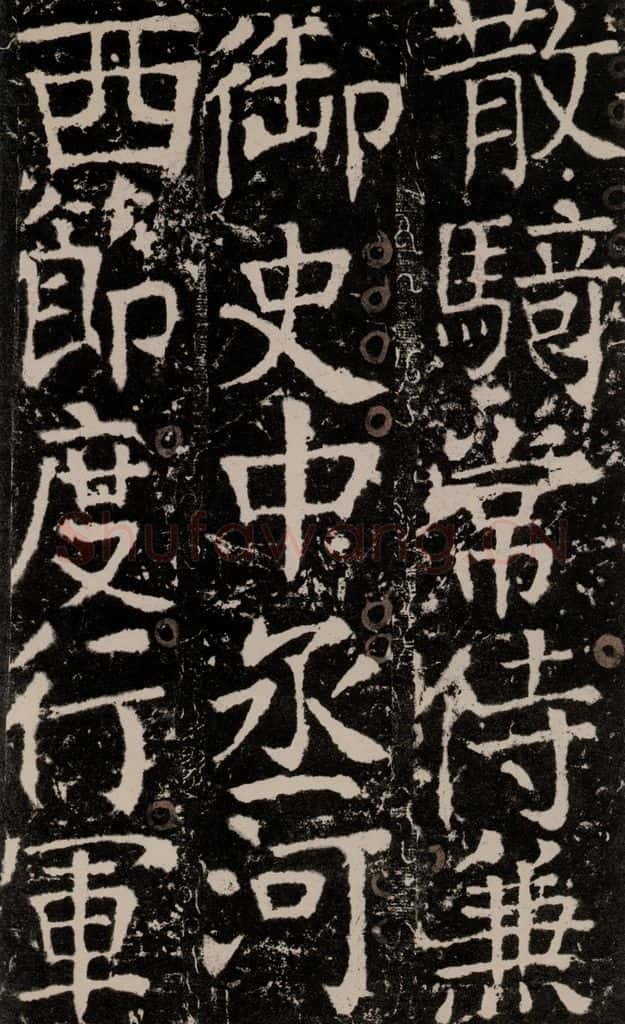 散騎常侍兼
御史中丞河
西節度行軍
Shufawang.CN